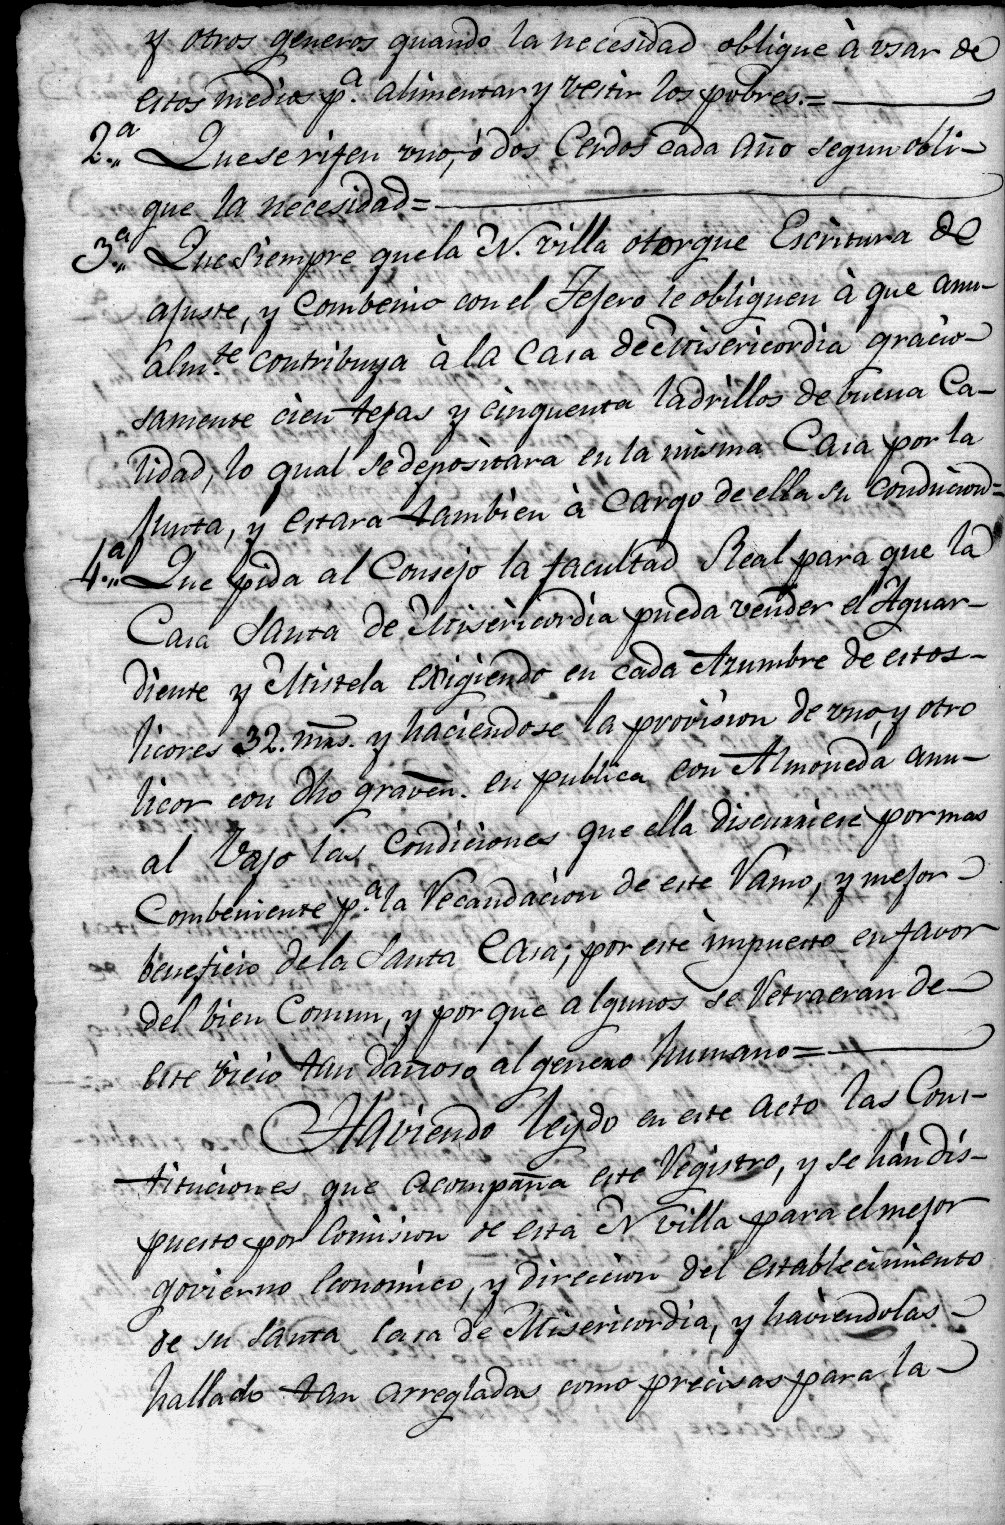 y otros generos quando la necesidad obligue à vsar de
estos medios p.ª alimentar y vestir los pobres.=
2.ª Que se rifen vno, ó dos Cerdos cada año segun obli-
gue la necesidad=
3.ª Que siempre que la N. villa otorgue Escritura de
ajuste, y Combenio con el Tejero le obliguen à que anu-
álm.te contribuya à la Casa de Misericordia gracio-
samente cien tejas y cinquenta ladrillos de buena Ca-
lidad, lo qual se depositara en la misma Casa por la
Junta, y estara tambien à cargo de ella su conducion=
4.ª Que pida al Consejo la facultad Real para que la
Casa Santa de Misericordia pueda vender el Aguar-
diente y Mistela exigiendo en cada Azumbre de estos
licores 32. mrs. y haciendose la provision de vno, y otro
licor con dho gravén. en publica con Almoneda anu-
al Vajo las Condiciones que ella discurriere por mas
Combeniente p.ª la Recaudacion de este Ramo, y mejor
beneficio de la Santa Casa; por este impuesto en favor
del bien Comun, y por que algunos se Retraeran de
este vicio tan dañoso al genero humano=
Haviendo leydo en este acto las Cons-
tituciones que acompaña este Registro, y se hán dis-
puesto por Comision de esta N villa para el mejor
govierno Economico, y direccion del establecimiento
de su Santa Casa de Misericordia, y haviendolas
hallado tan arregladas como precisas para la